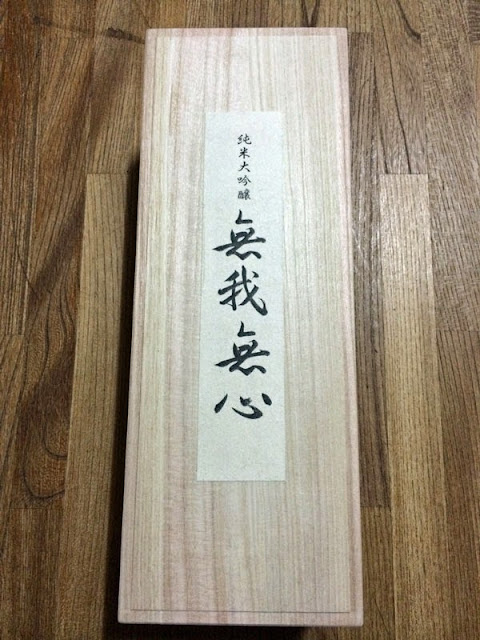 純米大吟醸
無我無心